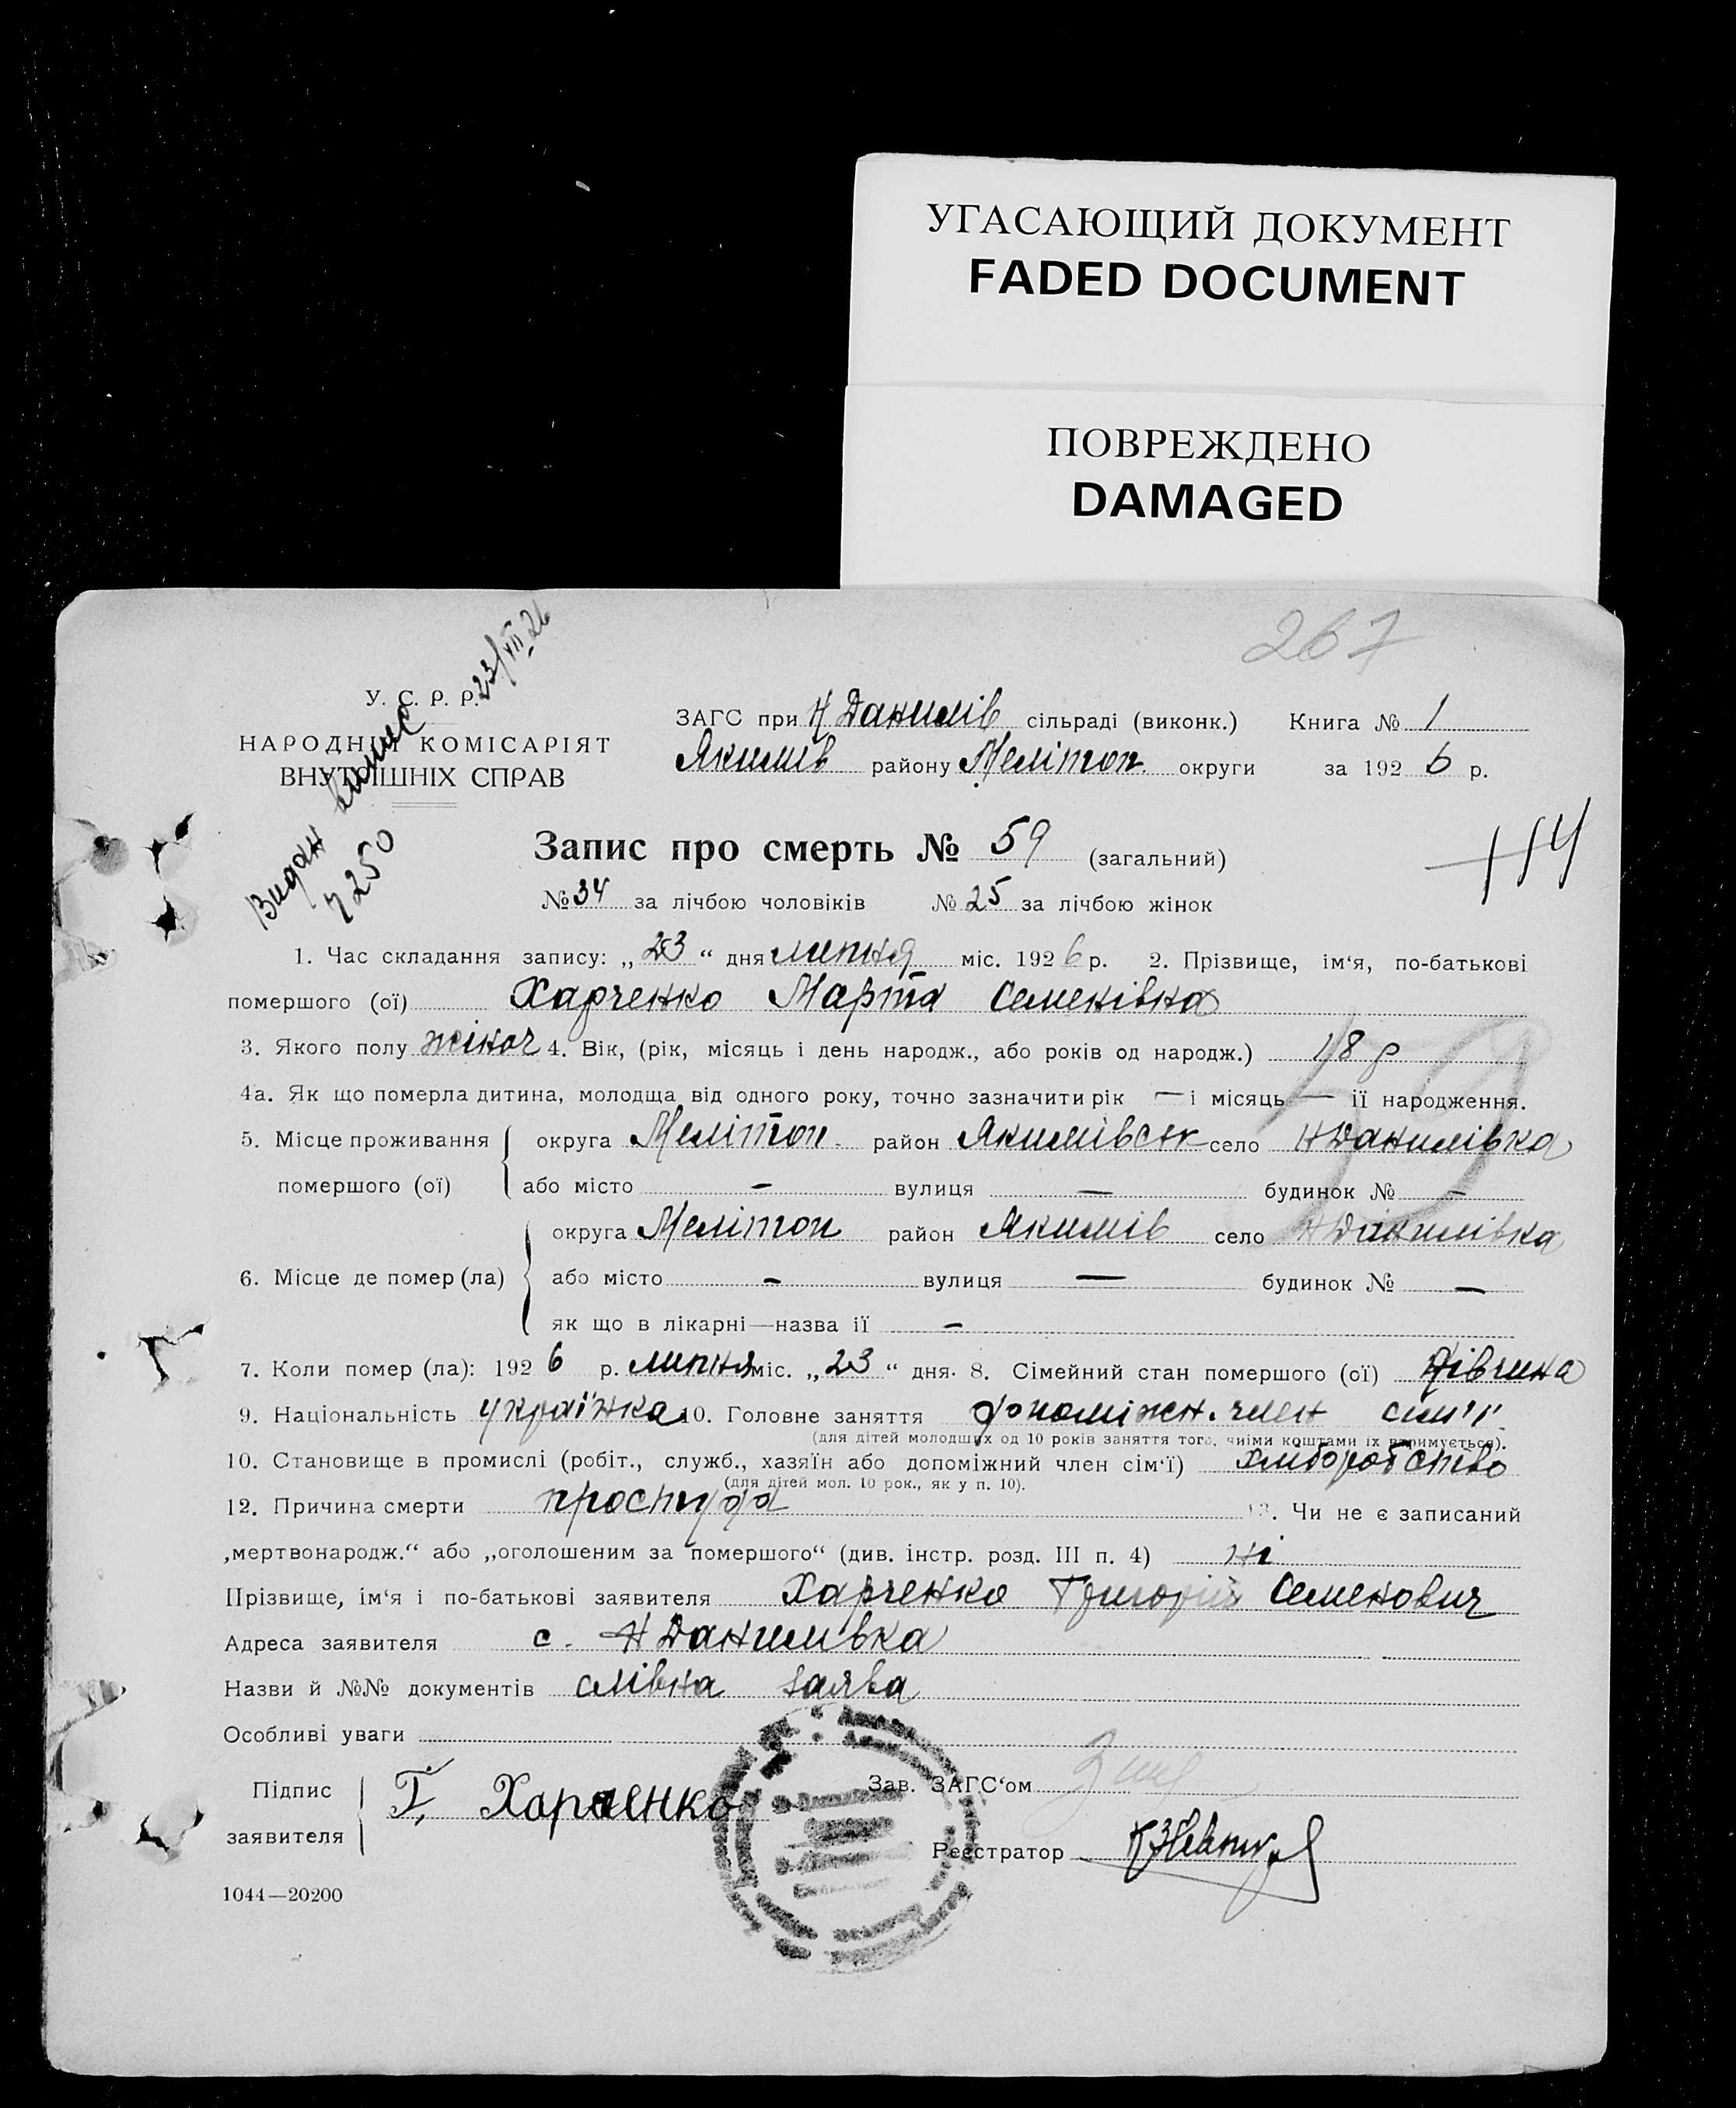 УГАСАЮЩИЙ ДОКУМЕНТ
FADED DOCUMENT
ПОВРЕЖДЕНО
DAMAGED
267
У. С. Р. Р.
НАРОДНІЙ КОМІСАРІЯТ
ВНУТРІШНІХ СПРАВ
Видан выпис 23/VII 26
7250
ЗАГС при Н Данилів сільраді (виконк.) Книга № 1
Якимів району Мелітоп. округи за 192 6 р.
Запис про смерть № 59 (загальний)
114
№ 34 за лічбою чоловіків № 25 за лічбою жінок
1. Час складання запису: „ 23 “ дня липня міс. 192 6 р. 2. Прізвище, ім‘я, по-батькові
помершого (ої) Харченко Марта Семенівна
3. Якого полу жіноч 4. Вік, (рік, місяць і день народж., або років од народж.) 18 р
59
4а. Як що померла дитина, молодща від одного року, точно зазначити рік — і місяць — ії народження.
5. Місце проживання помершого (ої) округа Мелітоп. район Якимівськ село Н Данилівка
або місто - вулиця — будинок № -
6. Місце де помер (ла) округа Мелітоп район Якимів село Н Данилівка
або місто - вулиця — будинок № —
як що в лікарні—назва ії -
7. Коли помер (ла): 192 6 р. липня міс. „ 23 “ дня. 8. Сімейний стан помершого (ої) дівчина
9. Національність україїнка 10. Головне заняття допоміжн. член сим'ї
(для дітей молодщих од 10 років заняття того, чиїми коштами їх втримується).
10. Становище в промислі (робіт., служб., хазяїн або допоміжний член сім‘ї) хліборобство
(для дітей мол. 10 рок., як у п. 10).
12. Причина смерти простуда 13. Чи не є записаний
„мертвонародж.“ або „оголошеним за помершого“ (див. інстр. розд. III п. 4) ні
Прізвище, ім‘я і по-батькові заявителя Харченко Григорій Семенович
Адреса заявителя с. Н Данилівка
Назви й №№ документів слівна заява
Особливі уваги
Підпис заявителя Г. Харченко
Зав. ЗАГС‘ом
Реєстратор
1044—20200